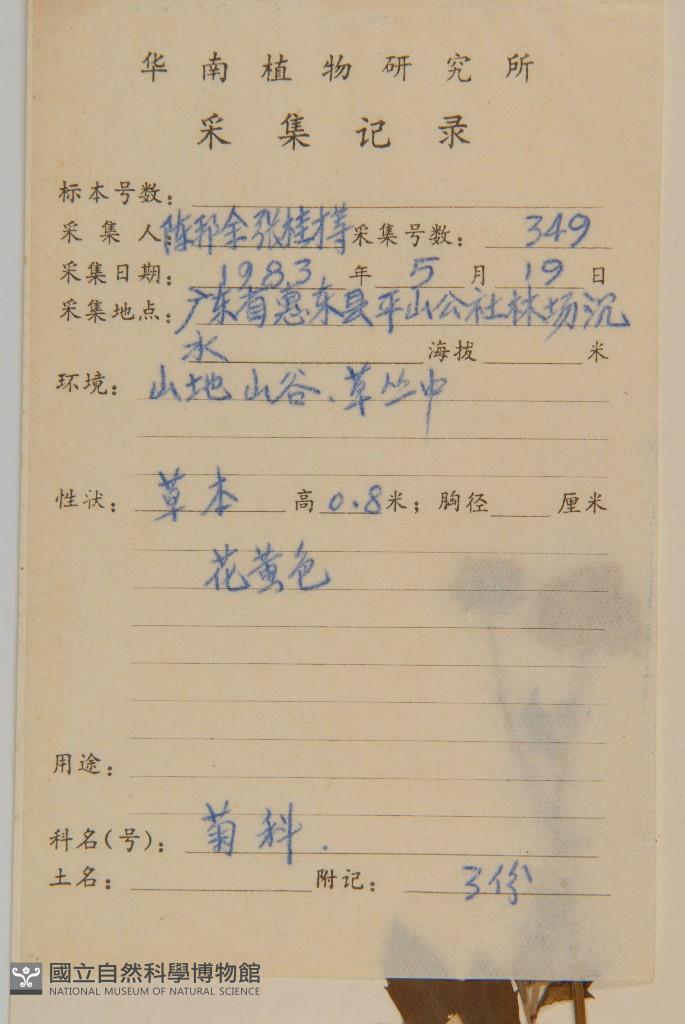 华南植物研究所
采集记录
标本号数:
采集人:陈邦余张桂才等采集号数: 349
采集日期: 1983 年 5 月 19 日
采集地点:广东省惠东县平山公社林场沉
水 海拔 米
环境: 山地山谷、草丛中
性状: 草本 高 0.8米; 胸径 厘米
花黄色
用途:
科名(号): 菊科.
土名: 附记: 3份
國立自然科學博物館
NATIONAL MUSEUM OF NATURAL SCIENCE